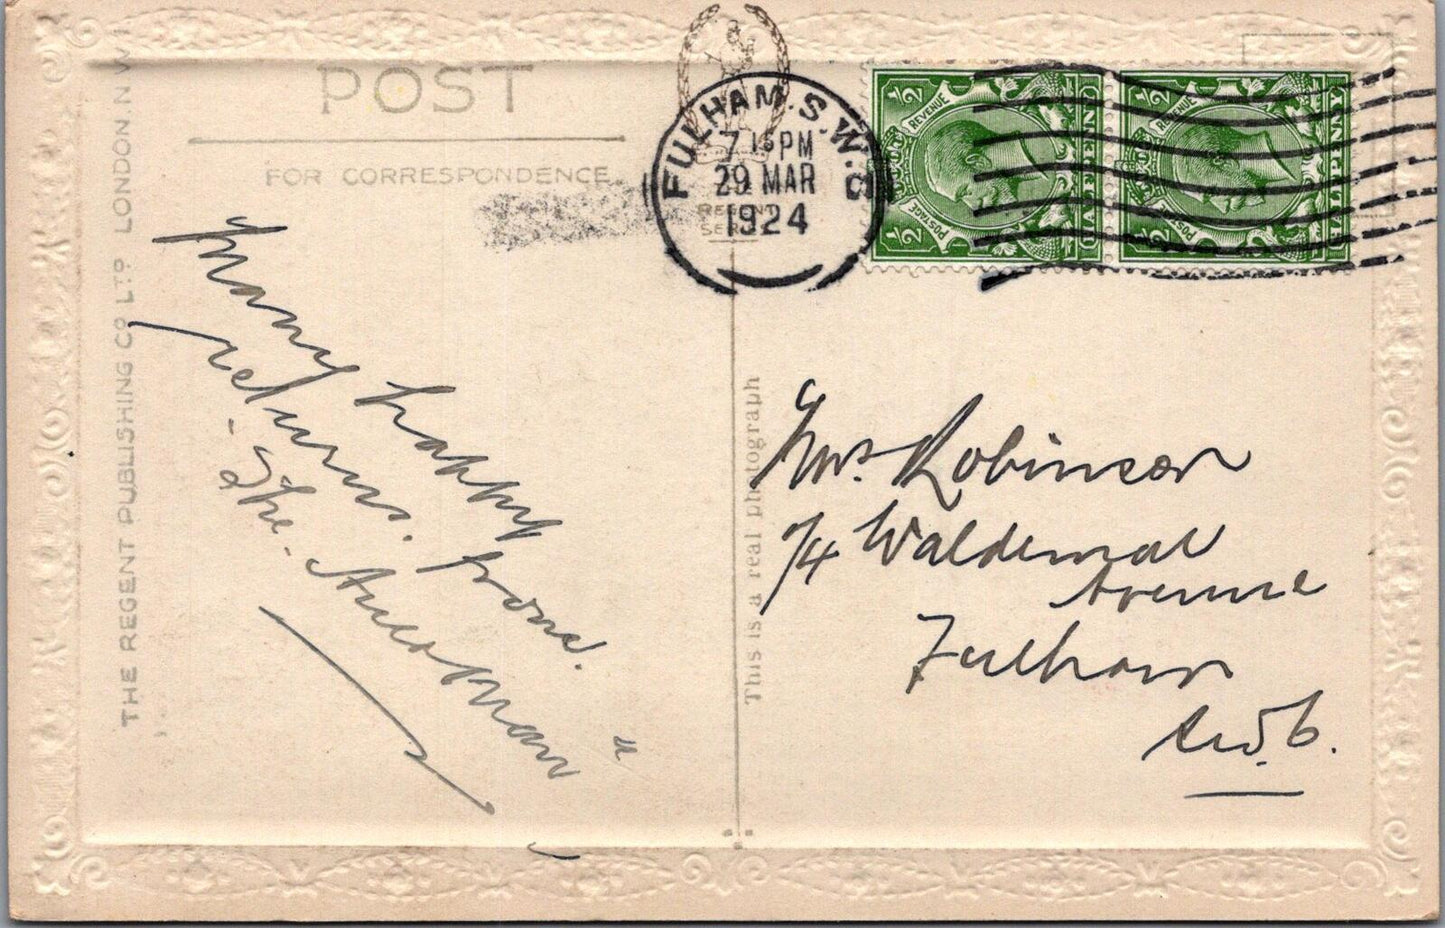 POST
FOR CORRESPONDENCE
THE REGENT PUBLISHING CO LTD LONDON. N W 1
REGENT
SERIES
FULHAM. S.W.6
7 15 PM
29 MAR
1924
POSTAGE
REVENUE
½
½
HALFPENNY
POSTAGE
REVENUE
½
½
HALFPENNY
This is a real photograph
Many happy
returns. from.
"The.
Mrs. Robinson
14 Waldemar
Avenue
Fulham
S.W.6.